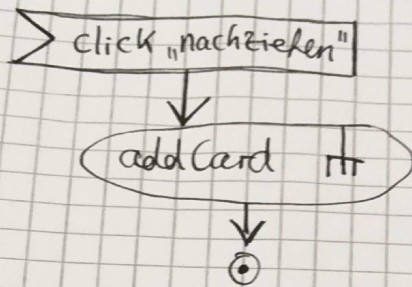 click „nachziehen"
addCard